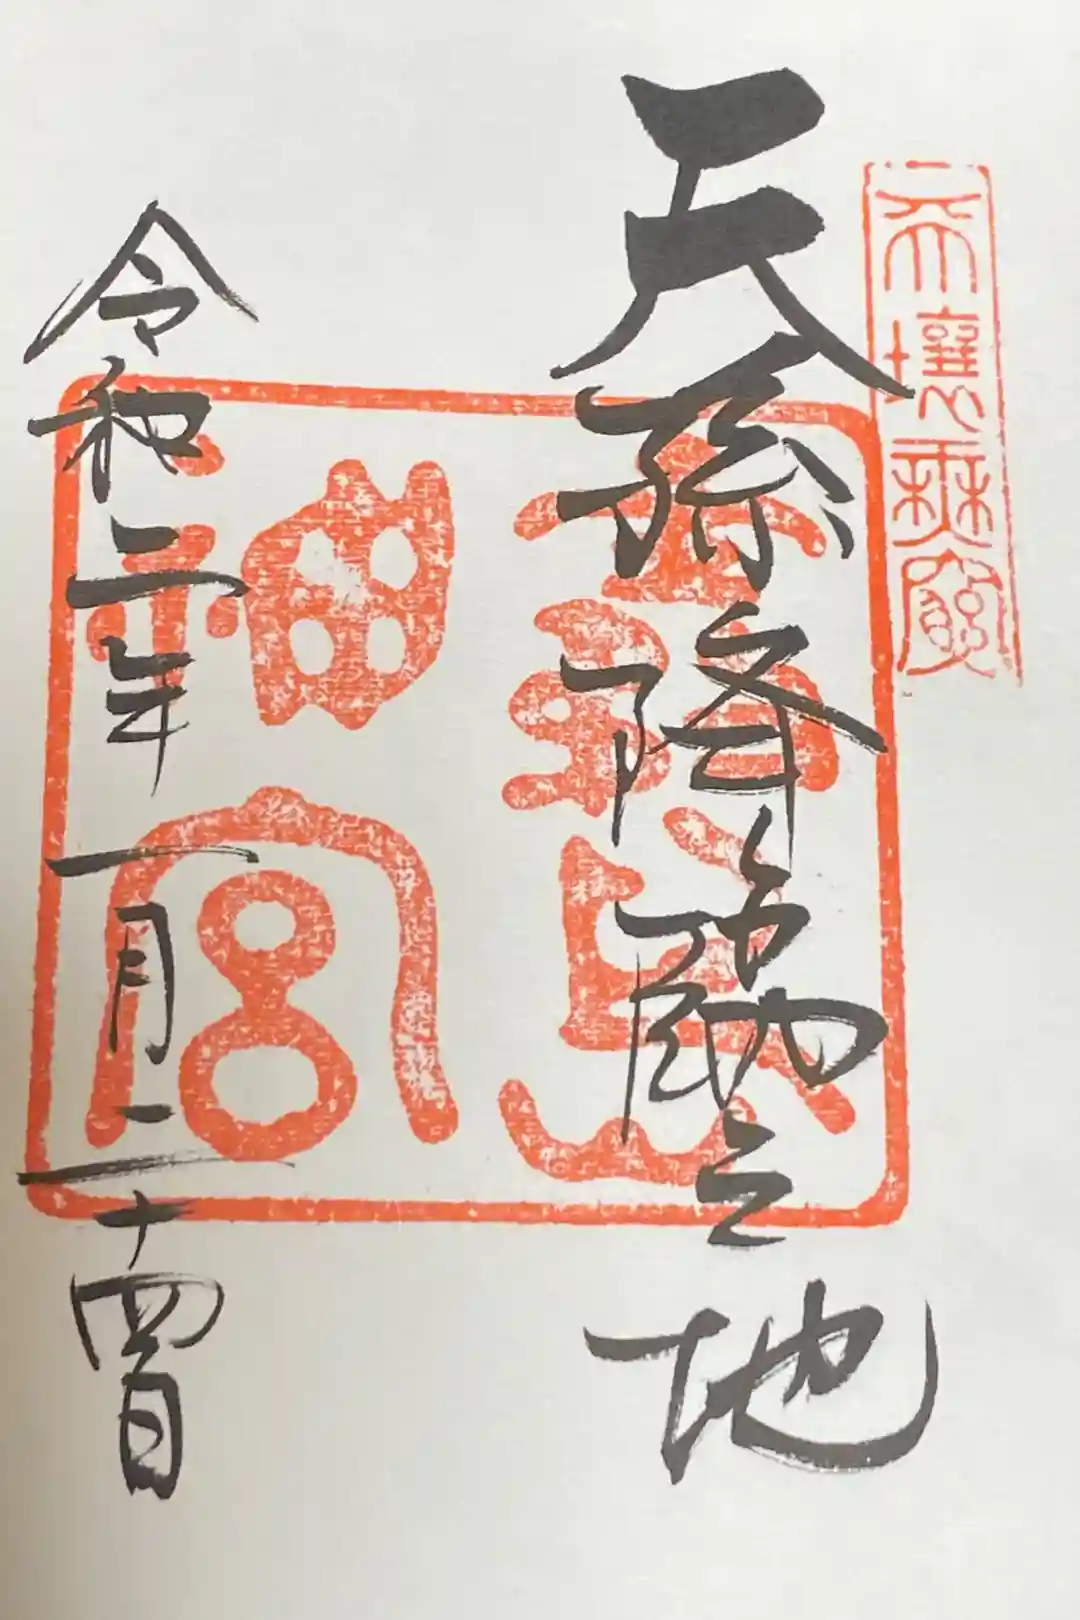 天壤無窮
天孫降臨之地
霧島
神宮
令和二年一月二十四日